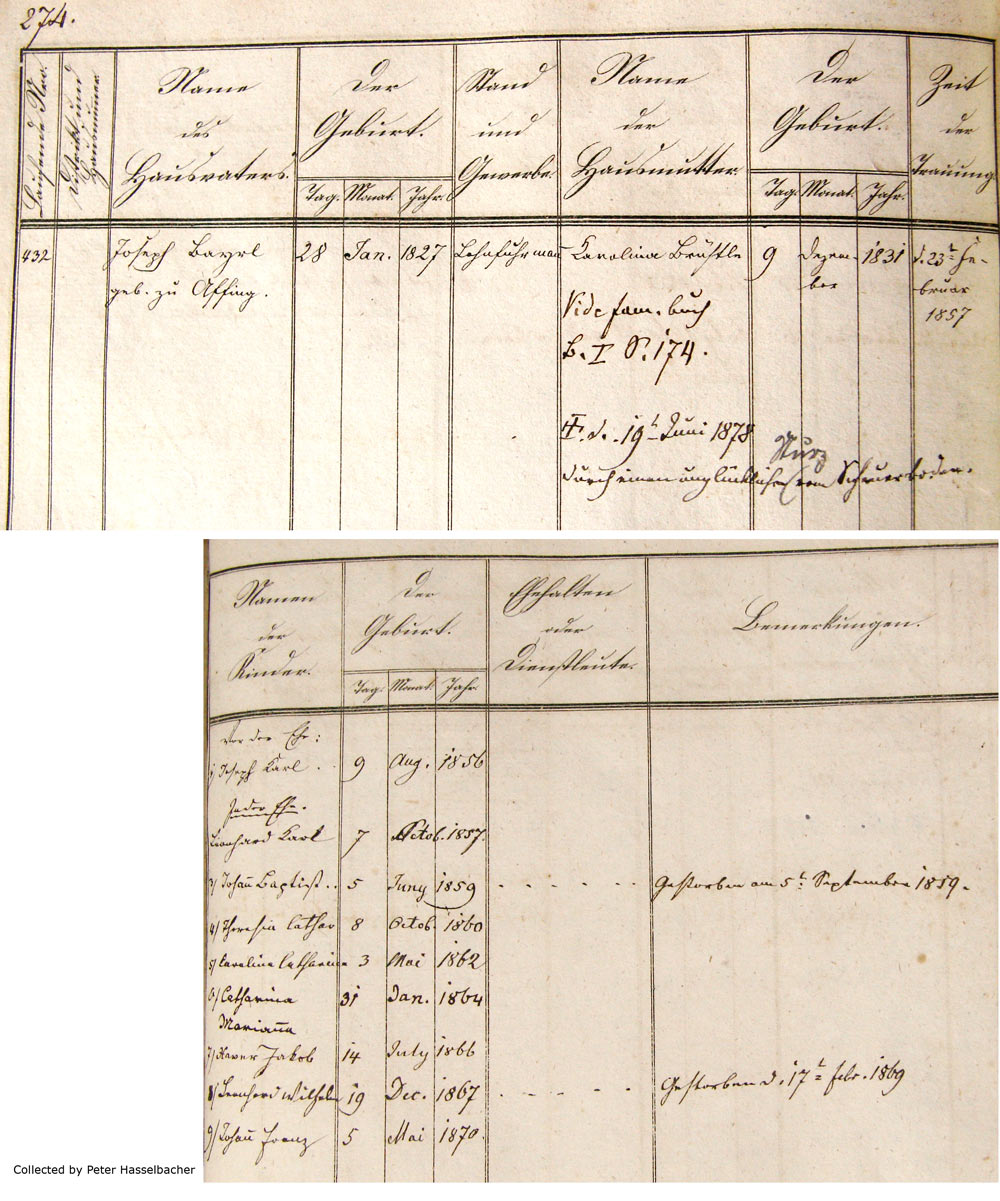 274.
Laufende Nro.
Distrikt und Hausnummer
Name des Hausvaters.
Der Geburt.
Tag. Monat. Jahr.
Stand und Gewerbe.
Name der Hausmutter
Der Geburt.
Tag. Monat. Jahr.
Zeit der Trauung
432 Joseph Bayrl 28 Jan. 1827 Lohnfuhrmann Karolina Brüstle 9 Dezem- 1831 d. 23t Fe-
geb. zu Affing. ber bruar
1857
Vide fam. buch
B. I S. 174.
d. 19t Juni 1878
Sturz
durch einen unglücklichen vom Scheuerboden.
Namen der Kinder.
Der Geburt.
Tag. Monat. Jahr.
Ehehalten oder Dienstleute.
Bemerkungen.
Vor der Ehe:
1) Joseph Karl . . 9 Aug. 1856
In der Ehe.
Leonhard Karl 7 Octob. 1857.
3) Johann Baptist . . 5 Juny 1859 . - - - - - Gestorben am 5t September 1859.
4) Theresia Cathar 8 Octob. 1860
5) Carolina Catharina 3 Mai 1862
6) Catharina 31 Jan. 1864
Marianna
7) Xaver Jakob 14 July 1866
8) Bernhard Wilhelm 19 Dec. 1867 . - - - - Gestorben d. 17t febr. 1869
9) Johann Franz 5 Mai 1870.
Collected by Peter Hasselbacher